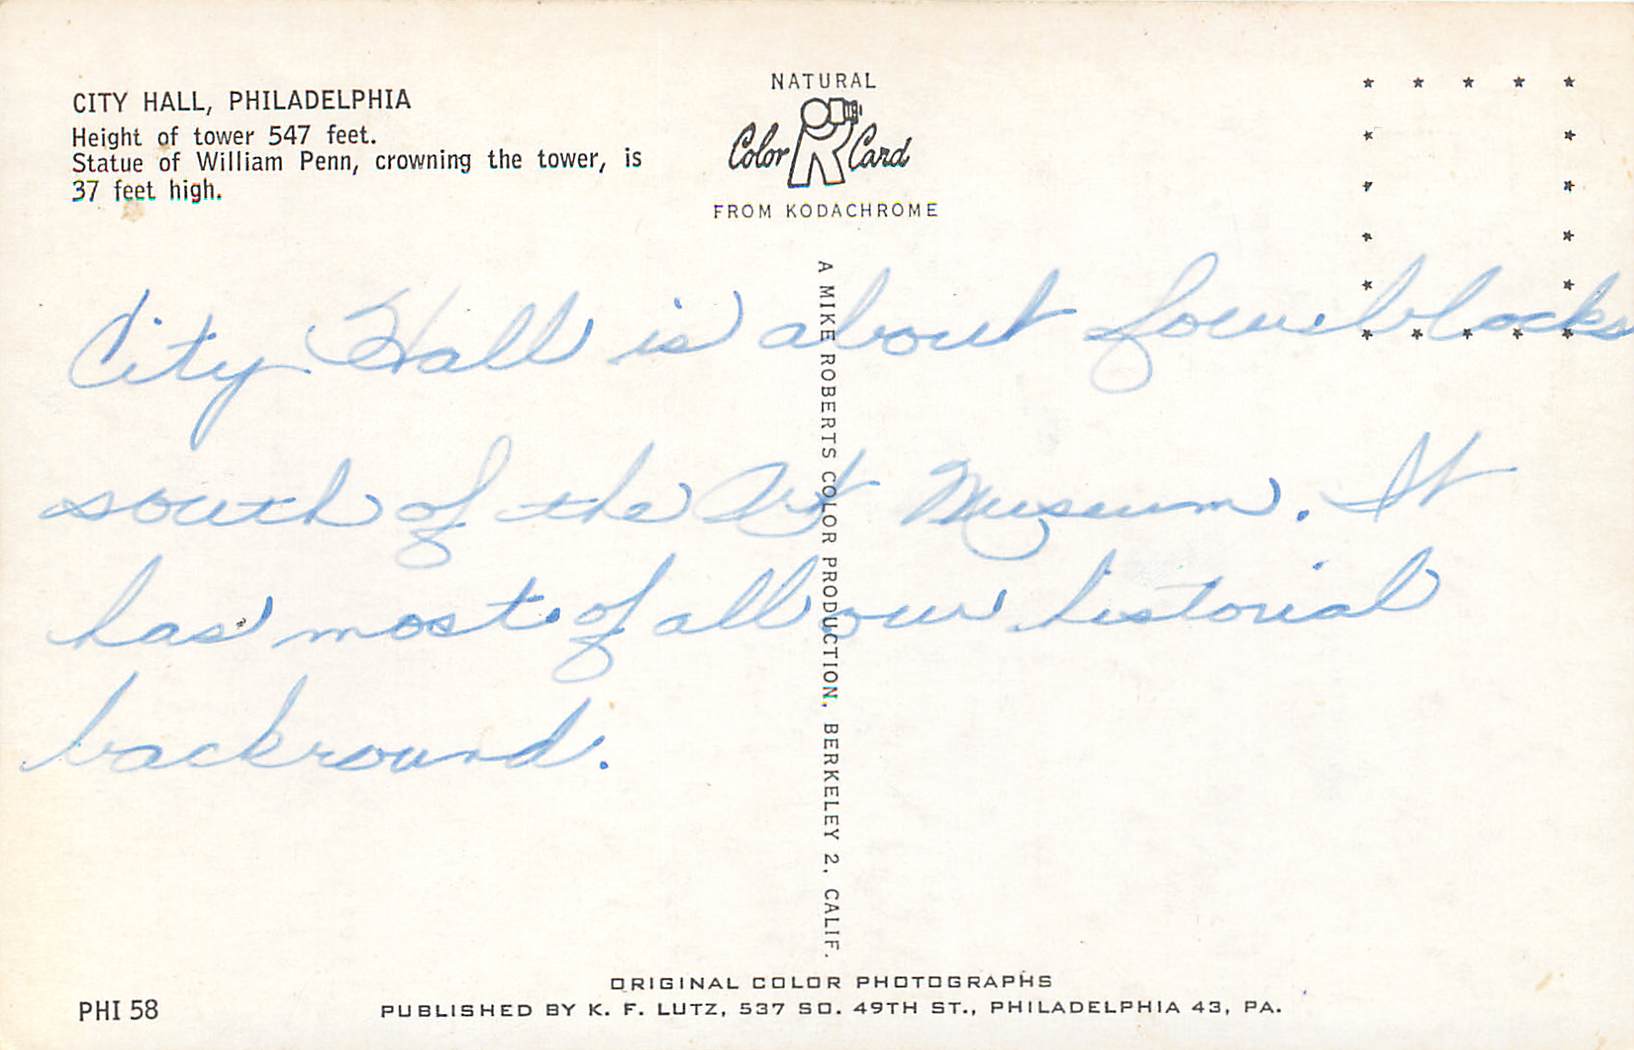 CITY HALL, PHILADELPHIA
Height of tower 547 feet.
Statue of William Penn, crowning the tower, is
37 feet high.
NATURAL
Color Card
FROM KODACHROME
City Hall is about four blocks
south of the Art Museum. It
has most of all our historial
backround.
A MIKE ROBERTS COLOR PRODUCTION, BERKELEY 2, CALIF.
ORIGINAL COLOR PHOTOGRAPHS
PHI 58
PUBLISHED BY K. F. LUTZ, 537 SO. 49TH ST., PHILADELPHIA 43, PA.